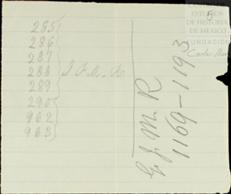 285
286
287
288
289
290
962
963
G. J. M. R
1169-1193
5
CENTRO DE ESTUDIOS
DE HISTORIA
DE MEXICO
FUNDACIÓN
Carlos Slim